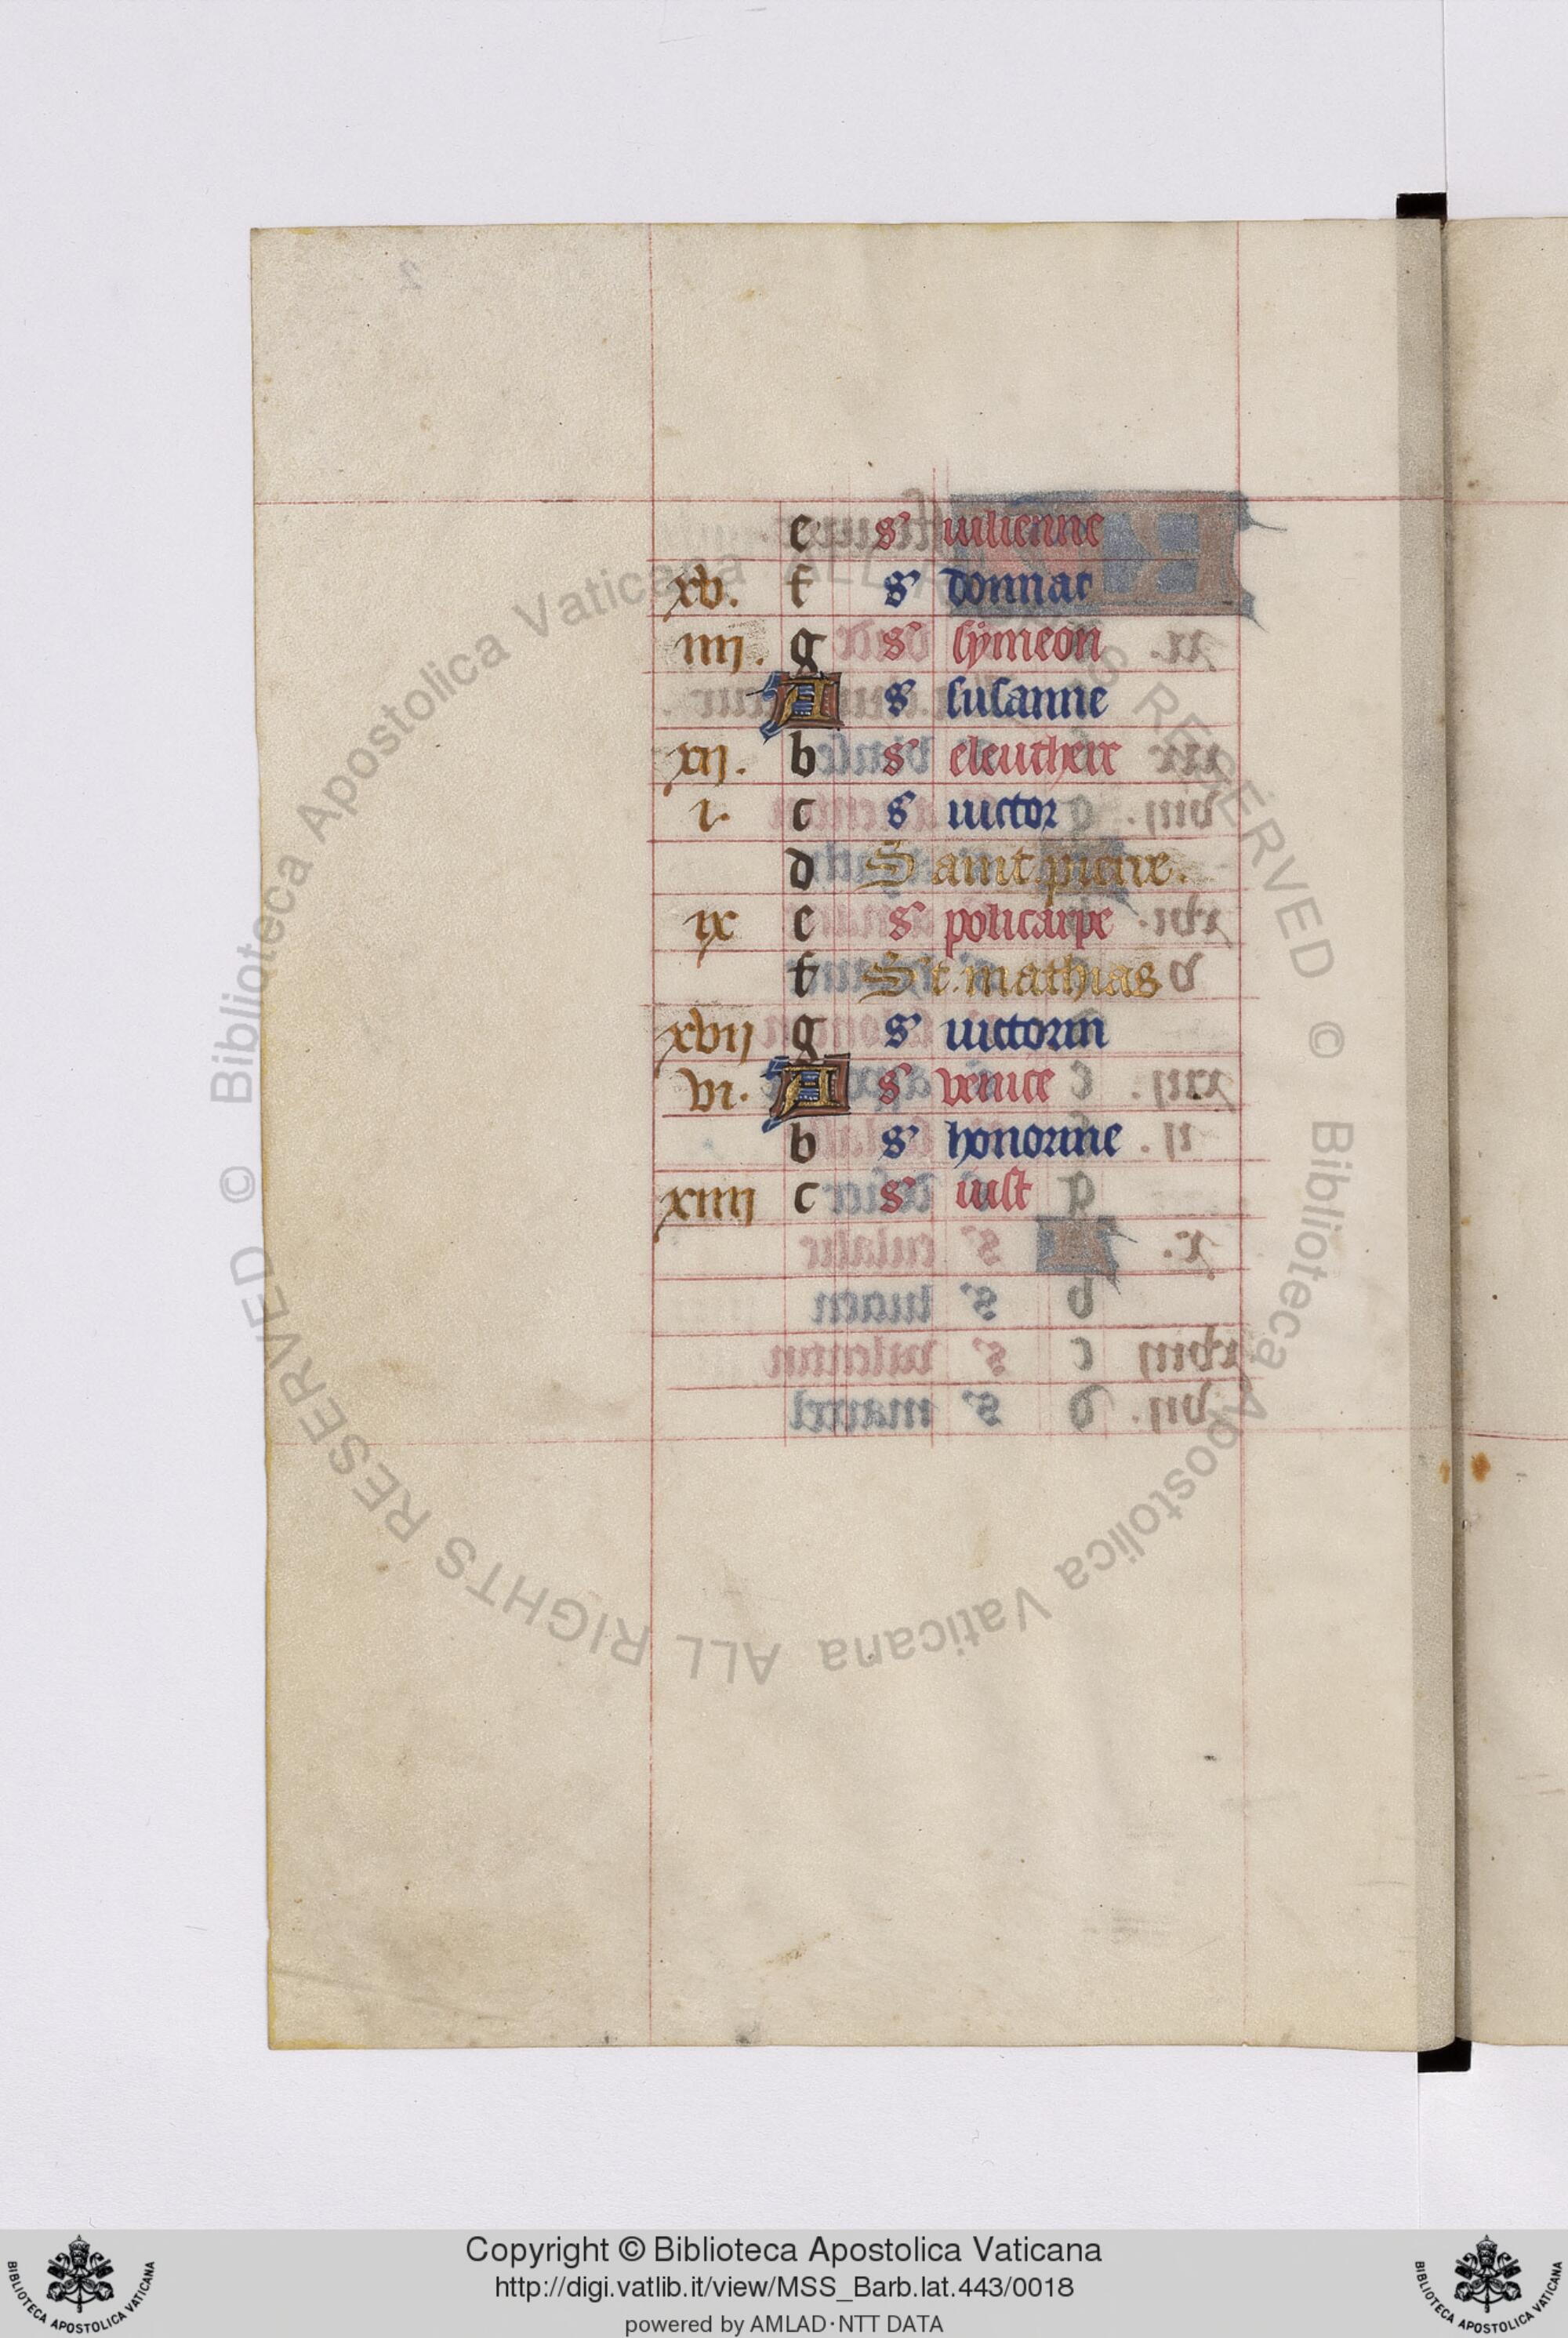 e s' iulienne
xv. f s' donnat
iiij. g s' symeon
A s' susanne
xij. b s' eleuthere
i. c s' uictor
d Saint pierre.
ix e s' policarpe
f St. mathias
xvij g s' uictorin
vi. A s' venice
b s' honorine
xiiij c s' iust
© Biblioteca Apostolica Vaticana ALL RIGHTS RESERVED © Biblioteca Apostolica Vaticana ALL RIGHTS RESERVED
Copyright © Biblioteca Apostolica Vaticana
http://digi.vatlib.it/view/MSS_Barb.lat.443/0018
powered by AMLAD·NTT DATA
BIBLIOTECA APOSTOLICA VATICANA
BIBLIOTECA APOSTOLICA VATICANA